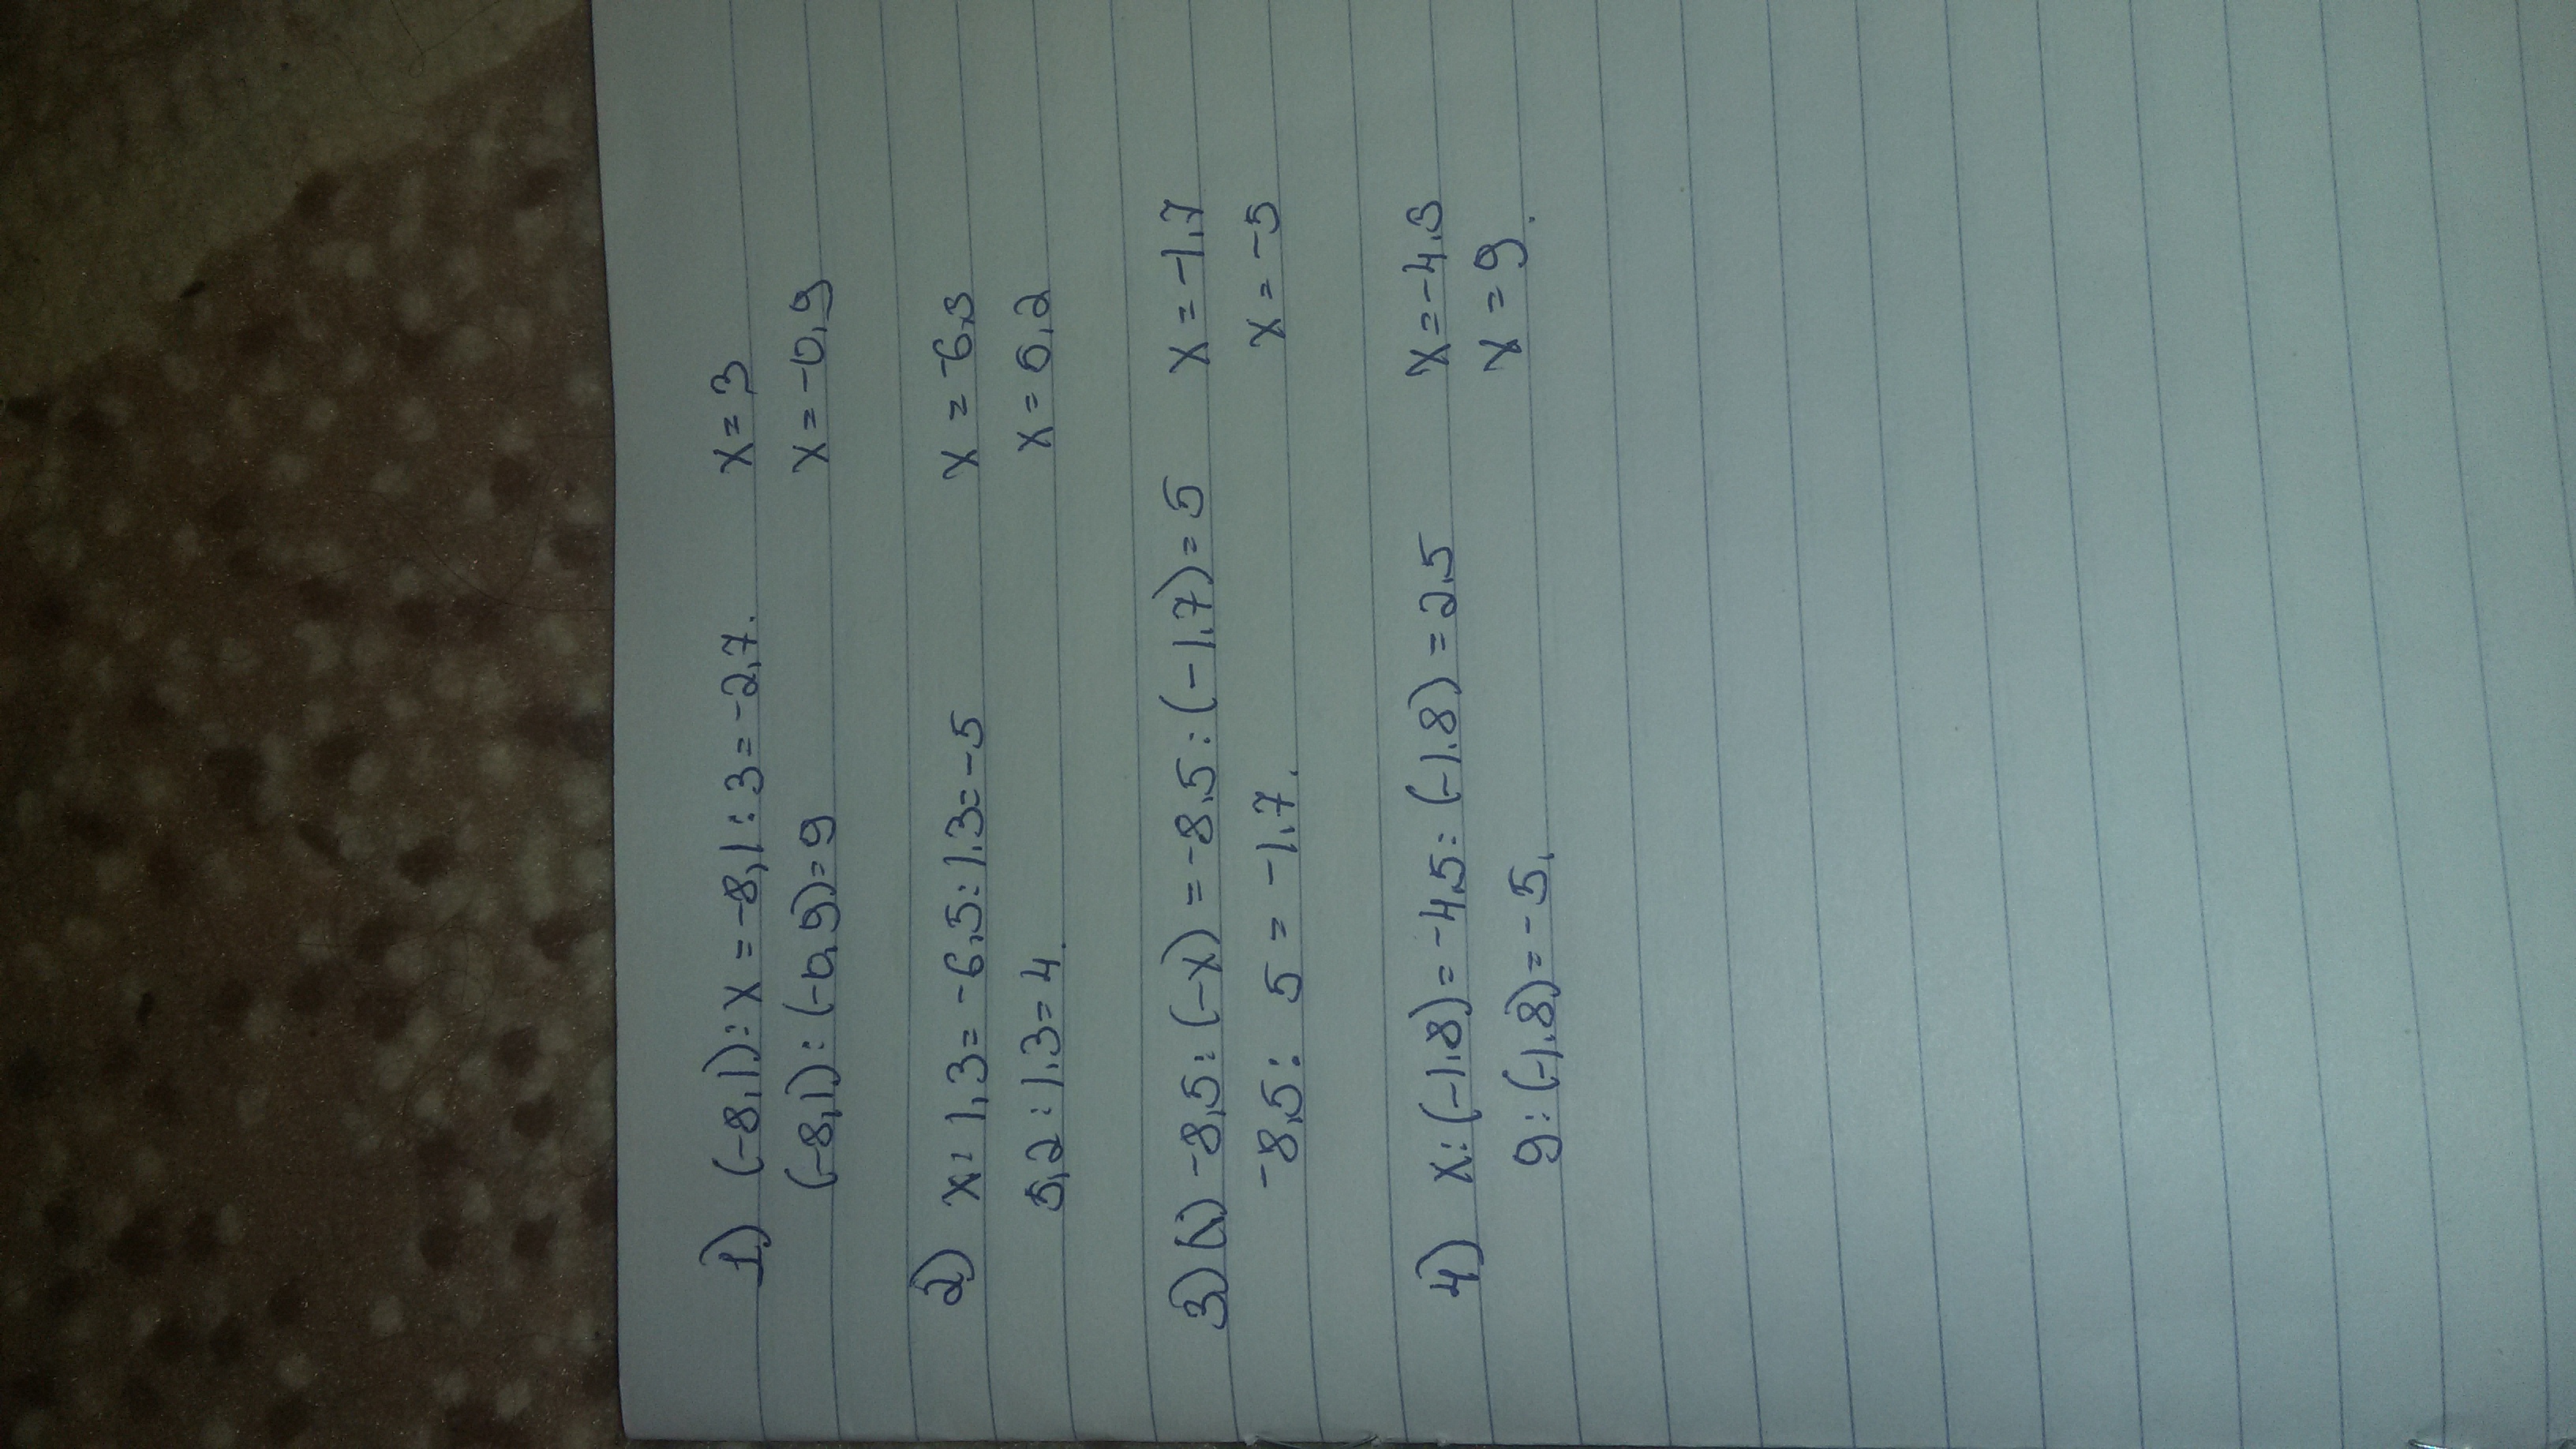 1) (-8,1):x = -8,1:3=-2,7. x=3
(-8,1):(-0,9)=9 x=-0,9
2) x:1,3=-6,5:1,3=-5 x=-6,5
5,2:1,3=4. x=5,2
3) -8,5:(-x)=-8,5:(-1,7)=5 x=-1,7
-8,5: 5 = -1,7. x=-5
4) x:(-1,8)=-4,5:(-1,8)=2,5 x=-4,5
9:(-1,8)=-5. x=9.